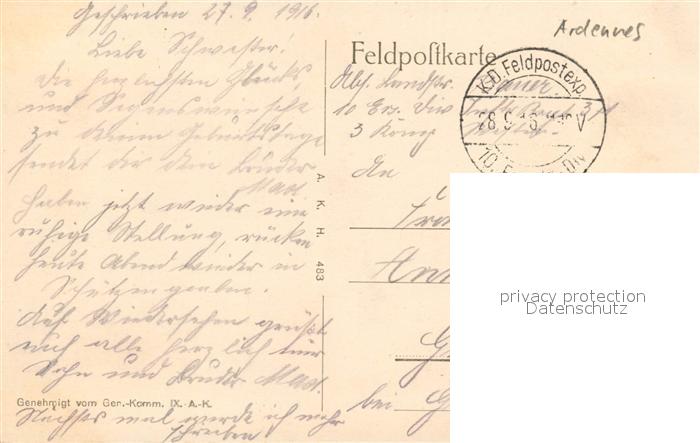 Geschrieben 27.9.1916.
Liebe Schwester!
Die herzlichsten Glücks
und Segenswünsche
zu deinem Geburtstage
sendet dir dein Bruder
Max
Haben jetzt wieder eine
ruhige Stellung, rücken
heute Abend wieder in
Schützengraben.
Auf Wiedersehen grüßt
euch alle herzlich euer
Sohn und Bruder Max.
Genehmigt vom Gen.-Komm. IX. A.-K.
Nächstes mal werde ich mehr
schreiben
A. K. H. 483
Ardennes
Feldpostkarte
Abs. Landstr.
10 Ers. Div
3 Komp
K.D. Feldpostexp.
28.9.16
An
bei
privacy protection
Datenschutz